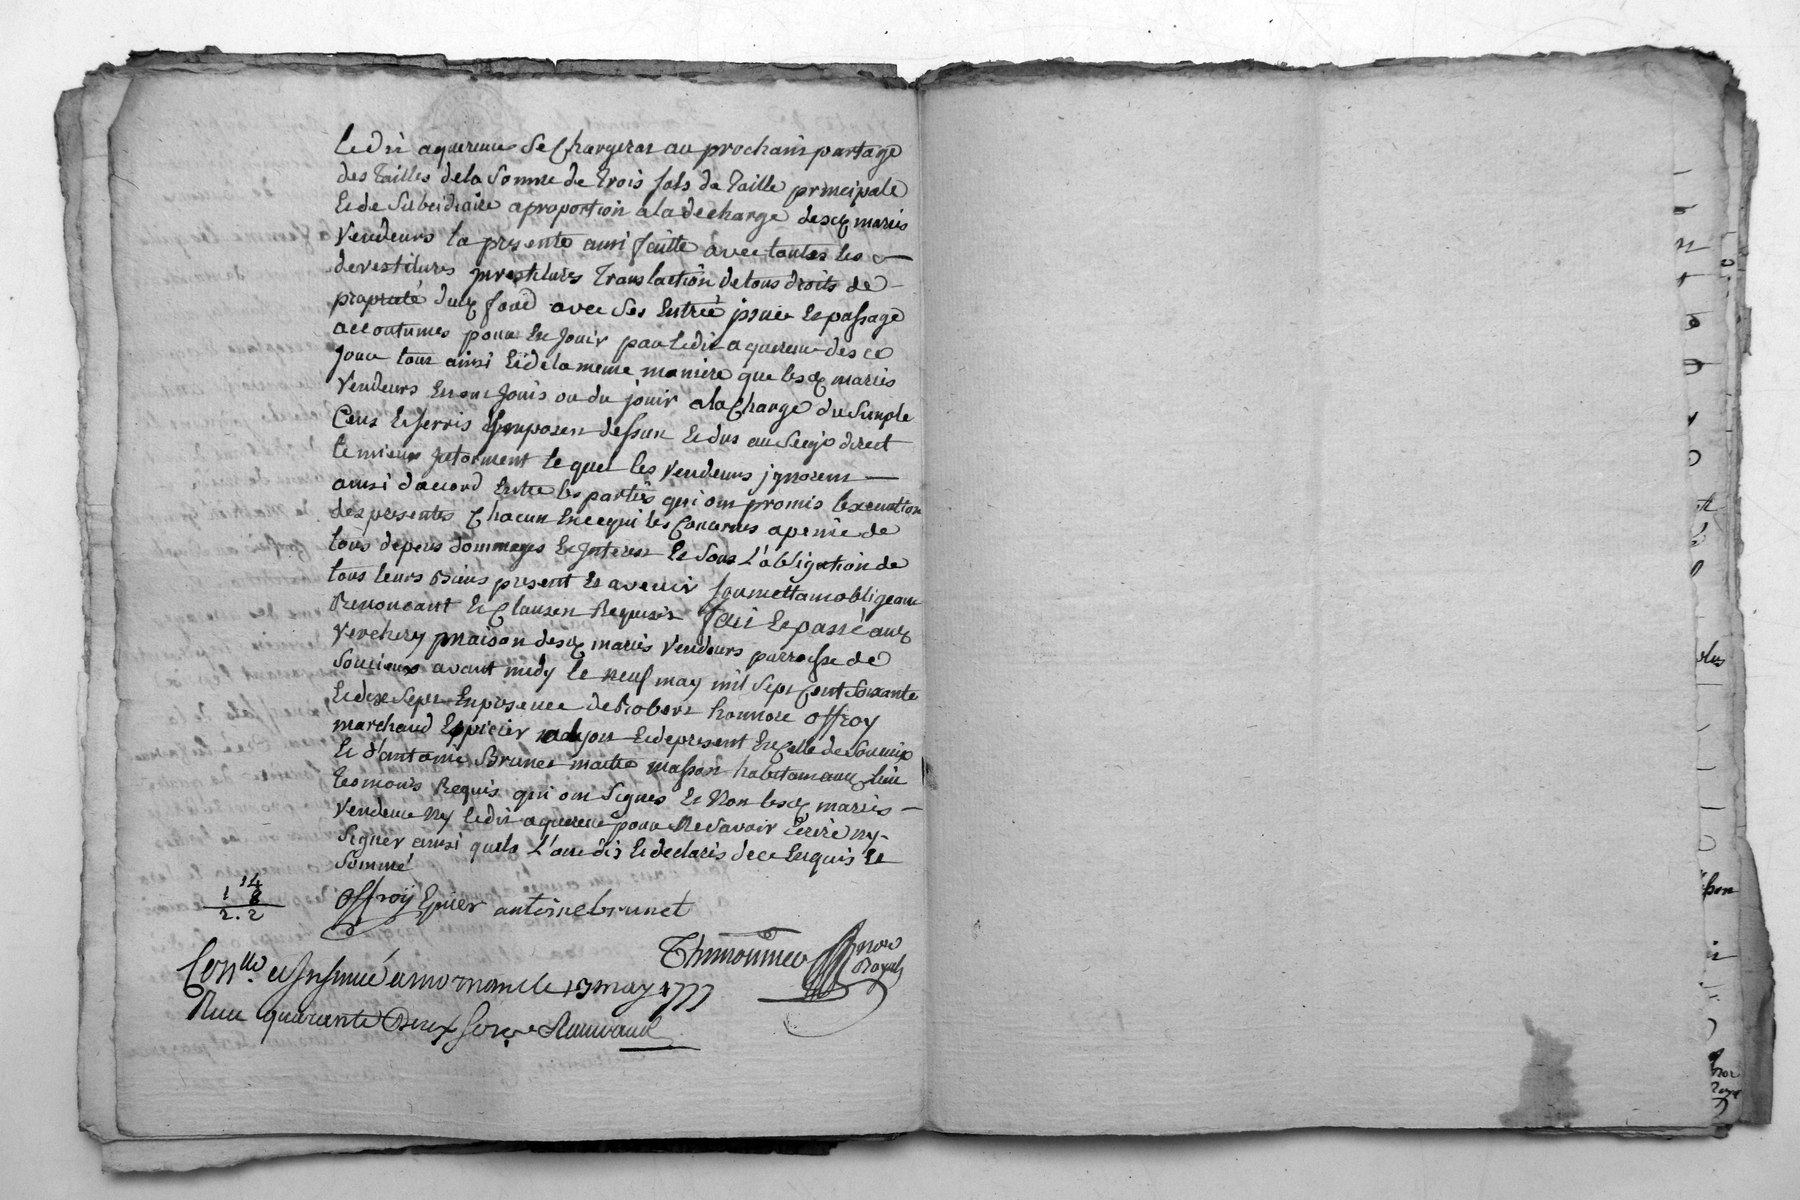 ledit aquereur se Chargerat au prochain partage
des tailles de la Somme de trois sols de taille principale
Et de Subcidiaire a proportion a la decharge desd mariés
Vendeurs la presente ainsi faitte avec toutes les
devestitures investitures translaction de tous droits de
propriete dud fond avec Ses Entrée issüe Et passage
accoutumes pour En Jouir par ledit aquereur des ce
Jour tout ainsi Et de la meme maniere que lesd mariés
Vendeurs En ont Jouis ou du jouir a la Charge du Simple
Cens Et servis Imposen dessun Et dus au Seigr direct
le mieux Informent le quel les Vendeurs ignorent
ainsi daccord Entre les parties qui ont promis lexecution
des presentes Chacun En ce qui les Concernes a penne de
tous depens dommages Et Interest Et Sous L'obligation de
tous leurs Biens present Et avenir soumettant obligeant
Renoncant Et Clausen Requises fait Et passé aud
Verchery maison desd mariés Vendeurs parroisse de
Soucieux avant midy le neuf may mil Sept Cent Soixante
Et dix Sept En presence de Robert honnore offroy
marchand Epicier a lyon Et de present En Celle de Soucieux
Et d'antoine Brunet maitre masson habitant aud lieu
temoins Requis qui ont Signes Et Non lesd mariés
Vendeur Ny ledit aquereur pour Ne Savoir Ecrire ny
Signer ainsi quils L'ont dis Et declaris de ce Enquis Et
Sommé
14
1 8
2. 2
Offroy Epicier antoine brunet
Thimonnier nore
Royal
Conllé et Insinué a mornant le 13 may 1777
Reçu quarante Deux sols